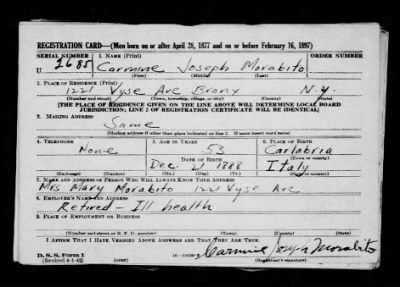 REGISTRATION CARD—(Men born on or after April 28, 1877 and on or before February 16, 1897)
SERIAL NUMBER 1. NAME (Print) ORDER NUMBER
U 2685 Carmine Joseph Morabito
(First) (Middle) (Last)
2. PLACE OF RESIDENCE (Print)
1221 Vyse Ave Bronx N.Y.
(Number and street) (Town, township, village, or city) (County) (State)
[THE PLACE OF RESIDENCE GIVEN ON THE LINE ABOVE WILL DETERMINE LOCAL BOARD
JURISDICTION; LINE 2 OF REGISTRATION CERTIFICATE WILL BE IDENTICAL]
3. MAILING ADDRESS
Same
[Mailing address if other than place indicated on line 2. If same insert word same]
4. TELEPHONE 5. AGE IN YEARS 6. PLACE OF BIRTH
None 53 Carlabria
DATE OF BIRTH (Town or county)
Dec 21 1888 Italy
(Exchange) (Number) (Mo.) (Day) (Yr.) (State or country)
7. NAME AND ADDRESS OF PERSON WHO WILL ALWAYS KNOW YOUR ADDRESS
Mrs Mary Morabito 1221 Vyse Ave
8. EMPLOYER'S NAME AND ADDRESS
Retired - Ill health
9. PLACE OF EMPLOYMENT OR BUSINESS
(Number and street or R. F. D. number) (Town) (County) (State)
I AFFIRM THAT I HAVE VERIFIED ABOVE ANSWERS AND THAT THEY ARE TRUE.
D. S. S. Form 1
(Revised 4-1-42) Carmine Joseph Morabito
(Registrant's signature)